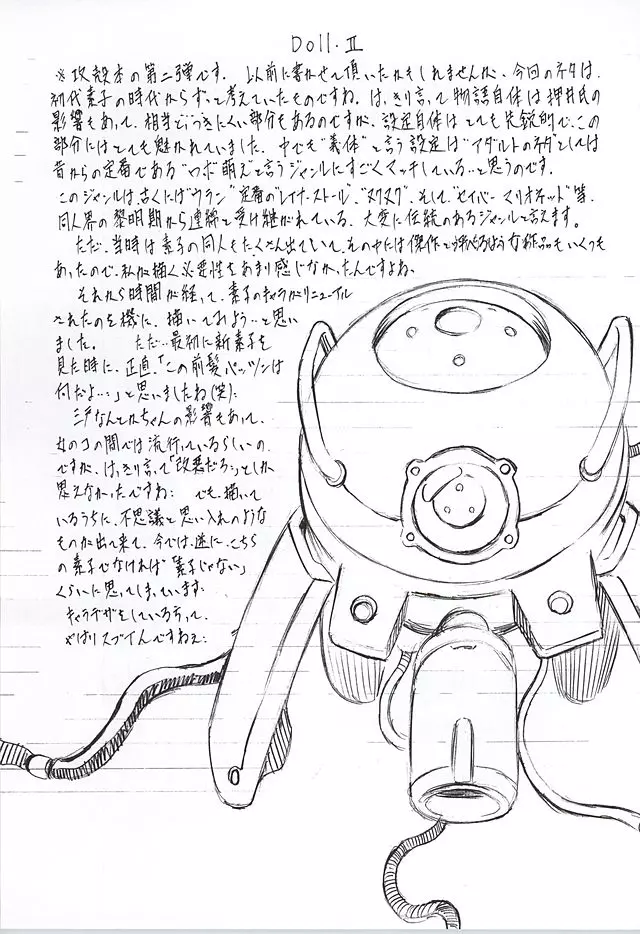 Doll.Ⅱ
※攻殻本の第二弾です. 以前に書かせて頂いたかもしれませんが、今回のネタは、
初代素子の時代からずっと考えていたものですね. はっきり言って物語自体は押井氏の
影響もあって、相当とっつきにくい部分もあるのですが、設定自体はとても先鋭的で、この
部分にはとても魅かれていました. 中でも"義体"と言う設定は"アダルトのネタ"としては
昔からの定番である"ロボ萌え"と言うジャンルにすごくマッチしている‥と思うのです.
このジャンルは、古くは"ウラン"定番の"レイナ・ストール"、"ヌクヌク"、そして"セイバーマリオネット"等、
同人界の黎明期から連綿と受け継がれている、大変に伝統のあるジャンルと言えます。
ただ、当時は素子の同人もたくさん出ていて、その中には傑作と呼べるような作品もいくつも
あったので、私が描く必要性をあまり感じなかったんですよね.
それから時間が経って、素子のキャラがリニューアル
されたのを機に、描いてみよう‥と思い
ました。 ただ‥最初に新素子を
見た時に、正直「この前髪パッツンは
何だよ‥」と思いましたね(笑):
三戸なんとかちゃんの影響もあって、
女のコの間では流行っているらしいの
ですが、はっきり言って「改悪だろ‥」としか
思えなかったですね: でも、描いて
いるうちに、不思議と思い入れのような
ものが出て来て、今では、逆に、こちら
の素子でなければ「素子じゃない」
くらいに思ってしまっています:
キャラデザをしている方って、
やはりスゴイんですねぇ: